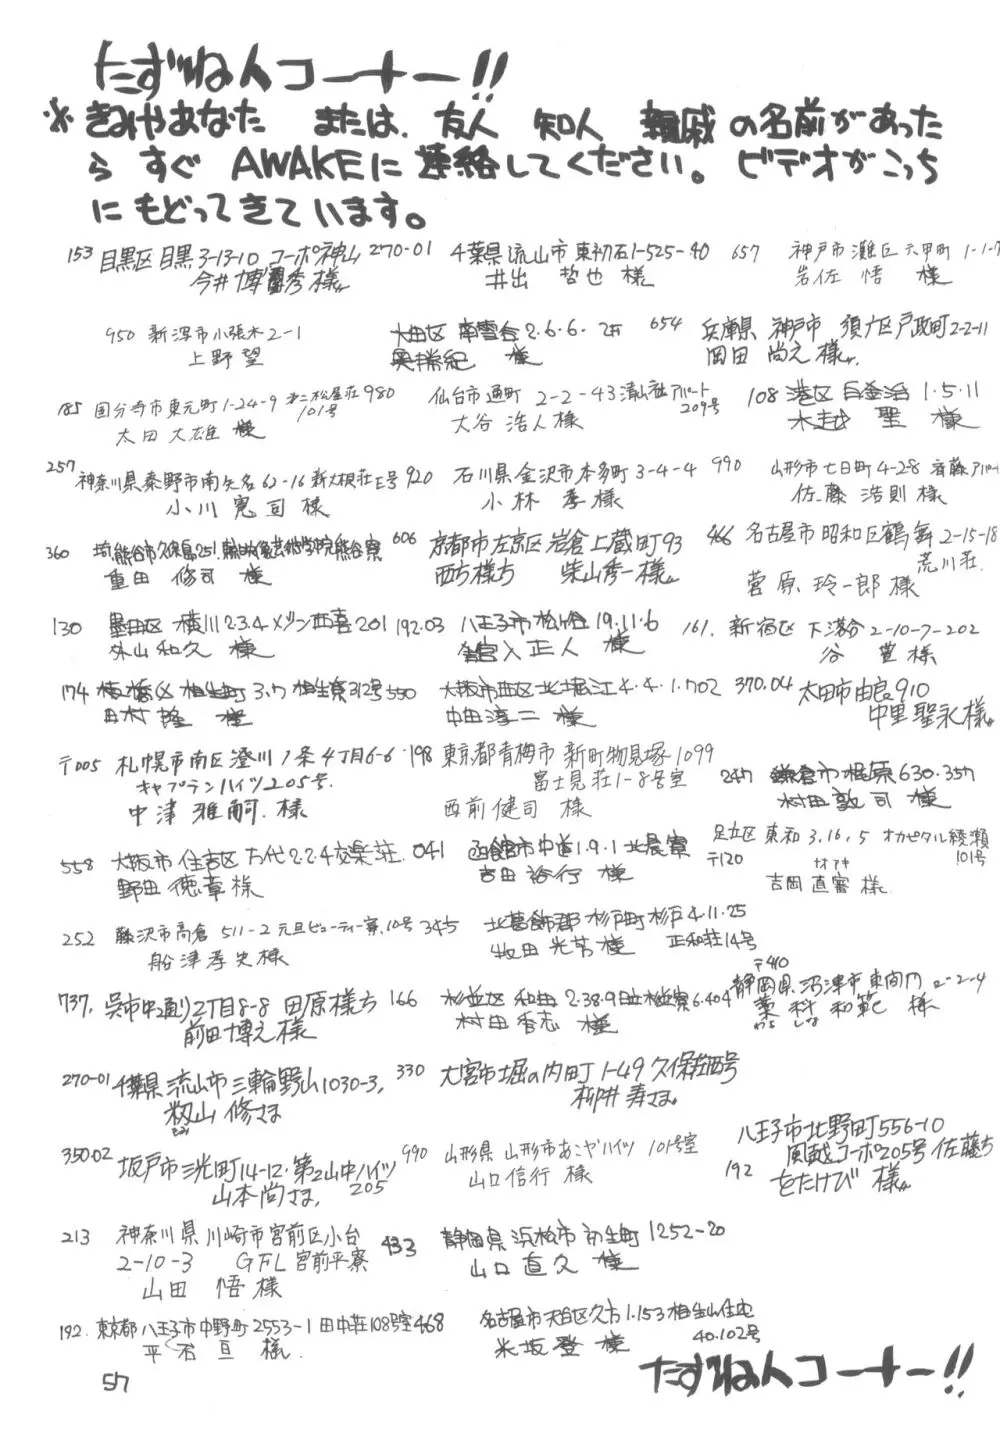 たずね人コーナー!!
※きみやあなた または、友人 知人 親戚の名前があった
ら すぐ AWAKEに連絡してください。ビデオがこっち
にもどってきています。
153 目黒区目黒3-13-10 コーポ神山
今井博秀様
270-01 千葉県流山市東初石1-525-40
井出 哲也 様
657 神戸市灘区六甲町1-1-
岩佐 悟 様
950 新潟市小張木2-1
上野望
大田区 南雪谷2.6.6.
奥 勝紀 様
654 兵庫県 神戸市 須磨区戸政町2-2-11
岡田 尚之様
185 国分寺市東元町1-24-9 第二松屋荘101号
太田大雄 様
980 仙台市通町 2-2-43 清山荘アパート209号
大谷 浩人様
108 港区 白金台 1.5.11
木越 聖 様
257 神奈川県秦野市南矢名62-16 新大根荘E号
小川 寛司 様
920 石川県金沢市本多町3-4-4
小林 孝様
990 山形市七日町4-28 斉藤アパート
佐藤 浩則 様
360 埼熊谷市久保島251 熊谷寮
重田 修司 様
606 京都市左京区岩倉上蔵町93
西方様方 柴山秀一様
466 名古屋市昭和区鶴舞2-15-18
荒川荘
菅原 玲一郎 様
130 墨田区 横川2.3.4メゾン西喜201
外山和久 様
192.03 八王子市松が谷19.11.6
正人 様
161. 新宿区 下落合2-10-7-202
谷 豊様
174 板橋区 相生町 3.7 相生寮312号
田村 隆 様
550 大阪市西区北堀江4.4.1.702
中田淳二 様
370.04 太田市由良910
中里聖永様
〒005 札幌市南区澄川1条4丁目6-6
キャプテンハイツ205号.
中津雅嗣.様
198 東京都青梅市新町物見塚1099
富士見荘1-8号室
西前健司 様
247 鎌倉市梶原630.357
村田敦司 様
558 大阪市住吉区万代2.2.4交楽荘.
野田徳章様
041 函館市中道1.9.1北晨寮
吉田裕行 様
足立区東和3.16.5 オカピタル綾瀬
〒120 101号
ナオアキ
吉岡直審様
252 藤沢市高倉 511-2 元旦ビューティー寮、10号
船津孝史様
345 北葛飾郡 杉戸町杉戸4.11.25
正和荘14号
牧田 光芳 様
737. 呉市中通り2丁目8-8 田原様方
前田博之様
166 杉並区 和田2.38.9 日立 寮6.404
村田香志 様
〒410
静岡県沼津市東間門2-2-4
藁科 和範 様
わら しな
270-01 千葉県流山市三輪野山1030-3.
籾山 修さま
もみ
330 大宮市堀の内町1-49久保荘西号
柳井寿さま
350.02 坂戸市三光町14-12.第2山中ハイツ
205
山本尚さま
990 山形県山形市あこやハイツ 101号室
山口信行 様
八王子市北野町556-10
風越コーポ205号 佐藤方
192 をたけび 様
213 神奈川県川崎市宮前区小台
2-10-3 GFL宮前平寮
山田 悟様
433 静岡県浜松市初生町1252-20
山口直久 様
192. 東京都八王子市中野町2553-1 田中荘108号室
平岩 亘 様
468 名古屋市天白区久方1.153相生山住宅
40.102号
米坂登 様
57
たずね人コーナー!!